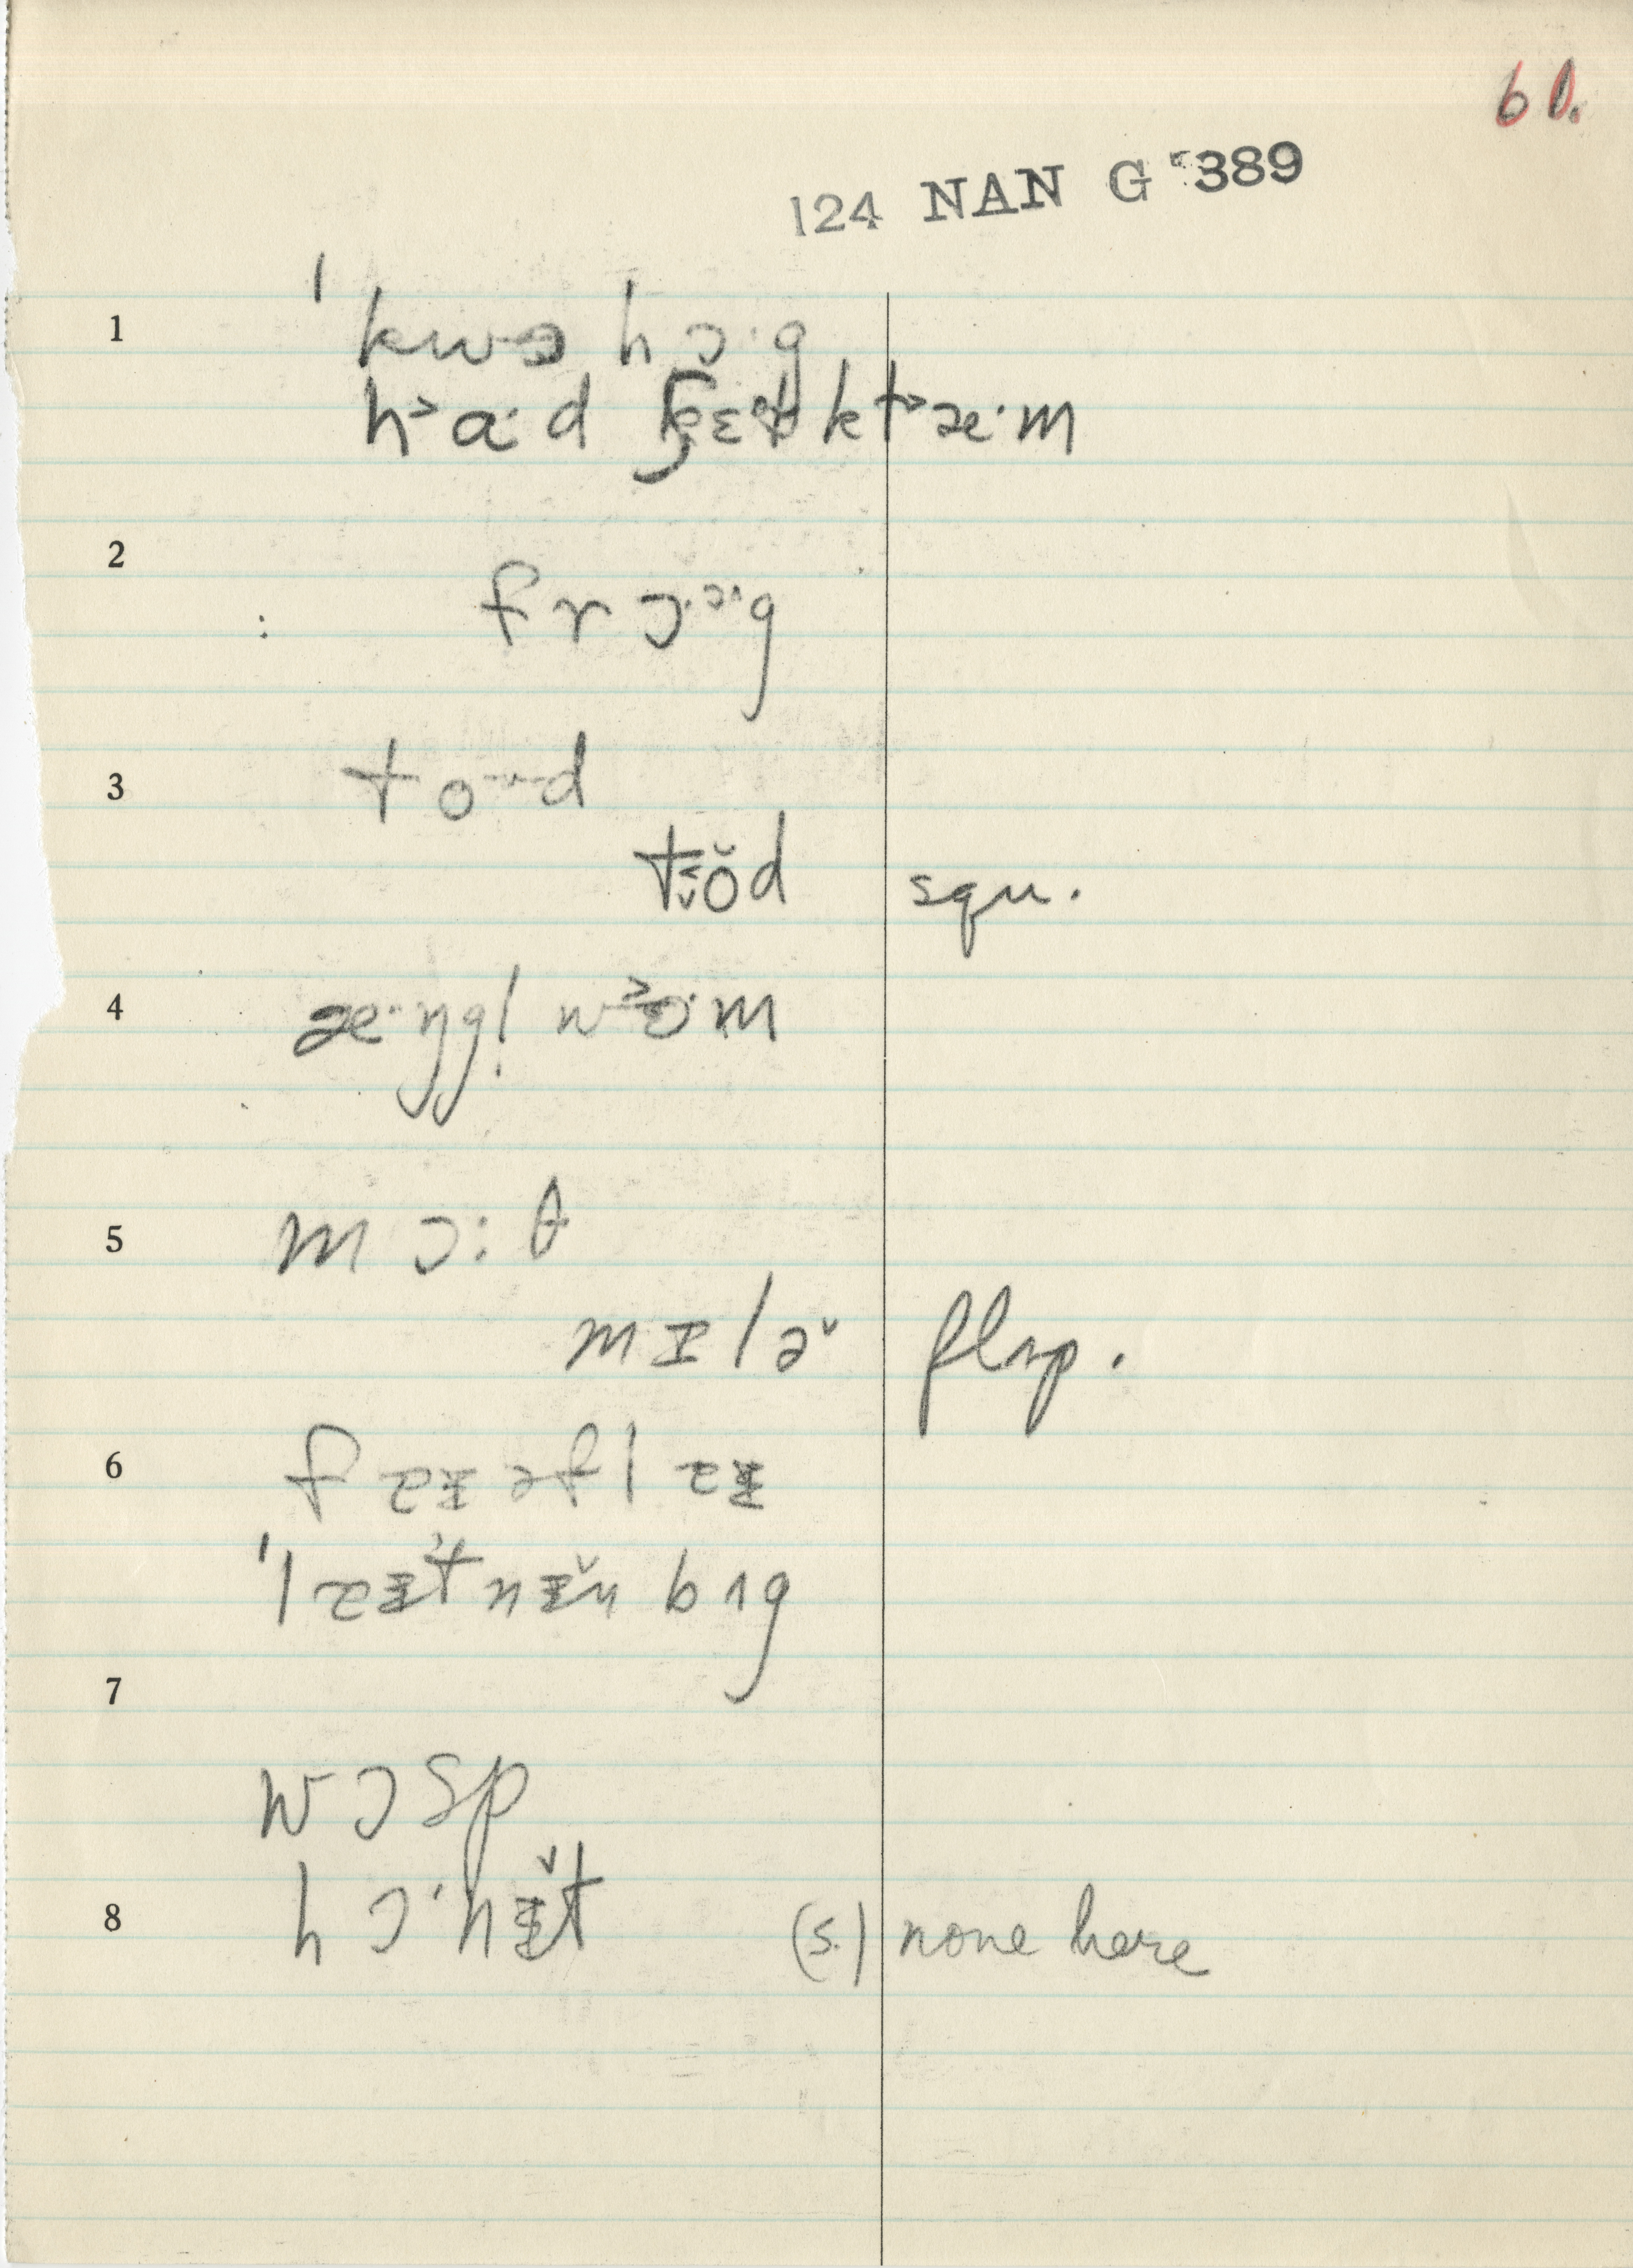 60.
124 NAN G 389
1 ˈkwə hɔ·g
h˃ɑ·d kt˃æ·m
2 frɔ·ə·g
3 to··d
tʒŏd squ.
4 æ·ŋgl̩ w˃ɔ·m
5 mɔ:θ
mɪlə̆ flsp.
6 fɐɪəflɐɪ
ˈlɐɪtnɪ̆n bɪg
7
wɔsp
8 hɔ·nɪ̆t (s.) none here